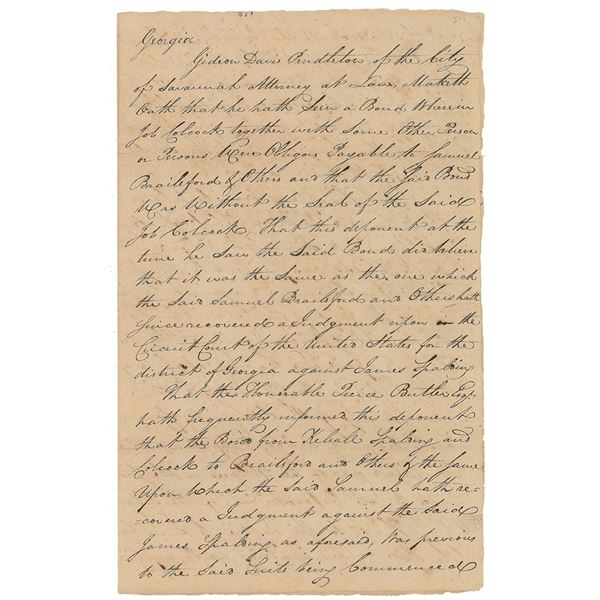 Georgia
Gideon Davis Pendleton of the City
of Savannah Attorney at Law, Maketh
Oath that he hath Seen a Bond Wherein
Job Colcock together with Some Other Person
or Persons Were Obligors Payable to Samuel
Brailsford & Others and that the Said Bond
Was Without the Seal of the Said
Job Colcock, That this deponent at the
time he Saw the Said Bond did believe
that it was the Same as the one which
the Said Samuel Brailsford and Others hath
Since recovered a Judgment upon in the
Circuit Court of the United States for the
district of Georgia against James Spalding
That the Honourable Peirce Butler Esqr
hath frequently informed this deponent
that the Bond from Kelsall Spalding and
Colcock to Brailsford and Others of the Same
Upon Which the Said Samuel hath re=
=covered a Judgment against the Said
James Spalding as aforesaid, Was previous
to the Said Suits being Commenced